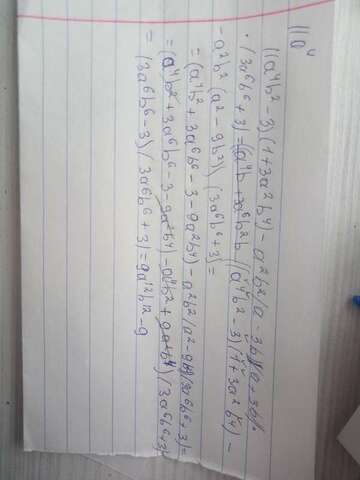 ||a⁴
((a⁴b² - 3)(1 + 3a²b⁴) - a²b²(a - 3b)(a + 3b))
· (3a⁶b⁶ + 3) = ((a⁴b² - 3)(1 + 3a²b⁴) -
- a²b² (a² - 9b²)) (3a⁶b⁶ + 3) =
= (a⁴b² + 3a⁶b⁶ - 3 - 9a²b⁴) - a²b²(a² - 9b²)(3a⁶b⁶ + 3) =
= (a⁴b² + 3a⁶b⁶ - 3 - 9a²b⁴) - a⁴b² + 9a²b⁴)(3a⁶b⁶ + 3)
= (3a⁶b⁶ - 3)(3a⁶b⁶ + 3) = 9a¹²b¹² - 9